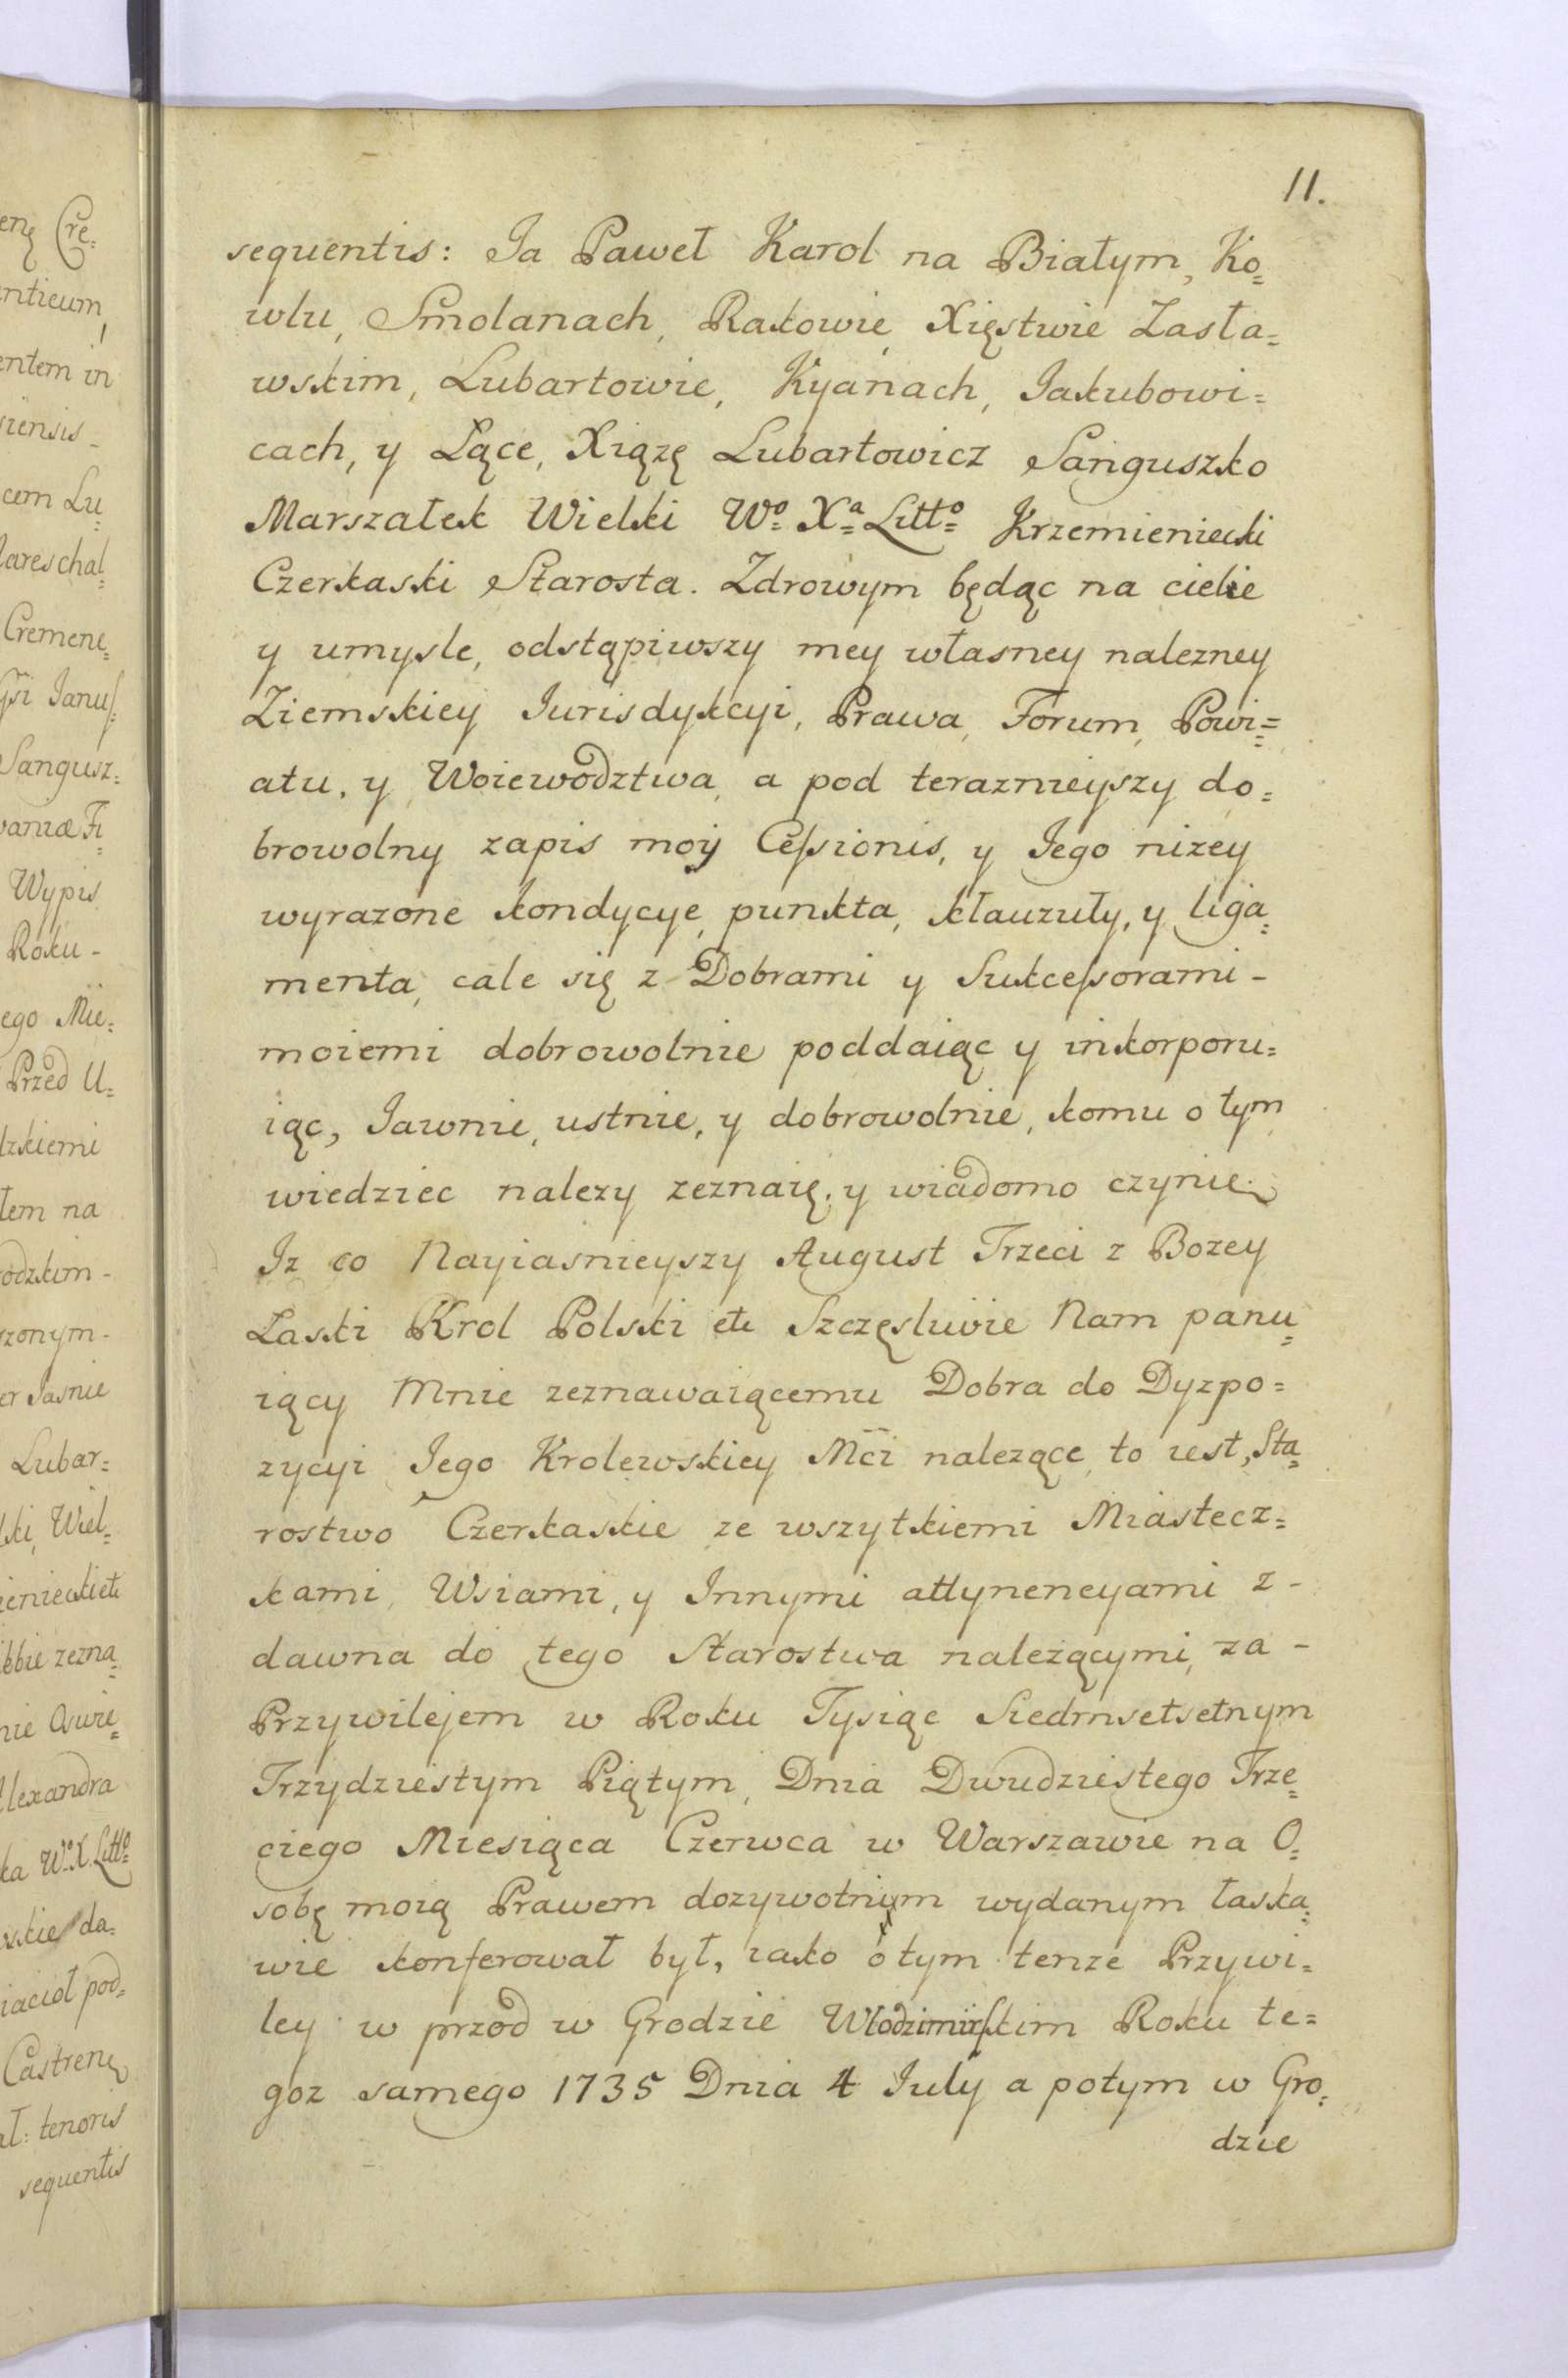 11.
sequentis: Ja Paweł Karol na Białym, Ko=
wlu, Smolanach, Rakowie, Xięstwie Zasła=
wskim, Lubartowie, Kyanach, Jakubowi=
cach, y Łące, Xiążę Lubartowicz Sanguszko
Marszałek Wielki Wº Xª Littº Krzemieniecki
Czerkaski Starosta. Zdrowym będąc na ciele
y umysle, odstąpiwszy mey własney nalezney
Ziemskiey Jurisdykcyi, Prawa, Forum, Powi=
atu, y Woiewodztwa, a pod teraznieyszy do=
browolny zapis moy Cessionis, y Jego nizey
wyrazone kondycye, punkta, kłauzuły, y liga=
menta, cale się z Dobrami y Sukcessorami -
moiemi dobrowolnie poddaiąc y inkorporu=
iąc, Jawnie, ustnie, y dobrowolnie, komu o tym
wiedziec nalezy zeznaię, y wiadomo czynię.
Iz co Nayiasnieyszy August Trzeci z Bozey
Łaski Krol Polski etc Szczęsliwie Nam panu=
iący Mnie zeznawaiącemu Dobra do Dyzpo=
zycyi Jego Krolewskiey Mci nalezące, to iest, Sta=
rostwo Czerkaskie ze wszytkiemi Miastecz=
kami, Wsiami, y Innymi attynencyami z -
dawna do tego Starostwa nalezącymi, za -
Przywilejem w Roku Tysiąc Siedmsetsetnym
Trzydziestym Piątym, Dnia Dwudziestego Trze=
ciego Miesiąca Czerwca w Warszawie na O=
sobę moią Prawem dozywotnym wydanym łaska=
wie konferował był, iako o tym tenze Przywi=
ley w przod w Grodzie Włodzimirskim Roku te=
goz samego 1735 Dnia 4 July a potym w Gro=
dzie